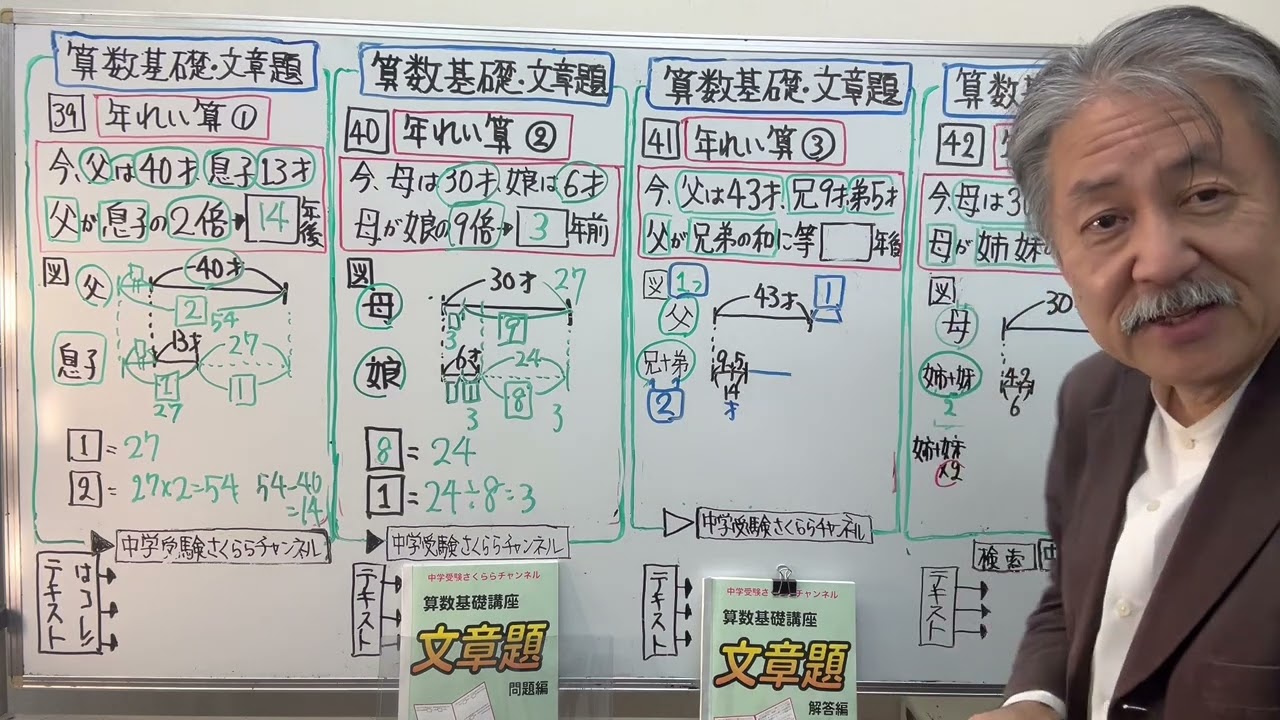 算数基礎・文章題
39 年れい算①
今、父は40才 息子13才
父が息子の2倍→14年後
図
父
40才
2
54
息子
13才
27
1
1
27
1 = 27
2 = 27×2=54 54-40
=14
中学受験さくららチャンネル
テキスト
はコレ
算数基礎・文章題
40 年れい算②
今、母は30才、娘は6才
母が娘の9倍→3年前
図
母
30才
27
3
9
娘
6才
24
8
3
3
8 = 24
1 = 24÷8=3
中学受験さくららチャンネル
テキスト
中学受験さくららチャンネル
算数基礎講座
文章題
問題編
算数基礎・文章題
41 年れい算③
今、父は43才、兄9才弟5才
父が兄弟の和に等 年後
図
1
父
43才
1
兄+弟
9+5
14
才
2
中学受験さくららチャンネル
テキスト
中学受験さくららチャンネル
算数基礎講座
文章題
解答編
算数
42
今、母は3
母が姉妹
図
母
30
姉+妹
4+2
6
2
姉+妹
×2
検索
テキスト